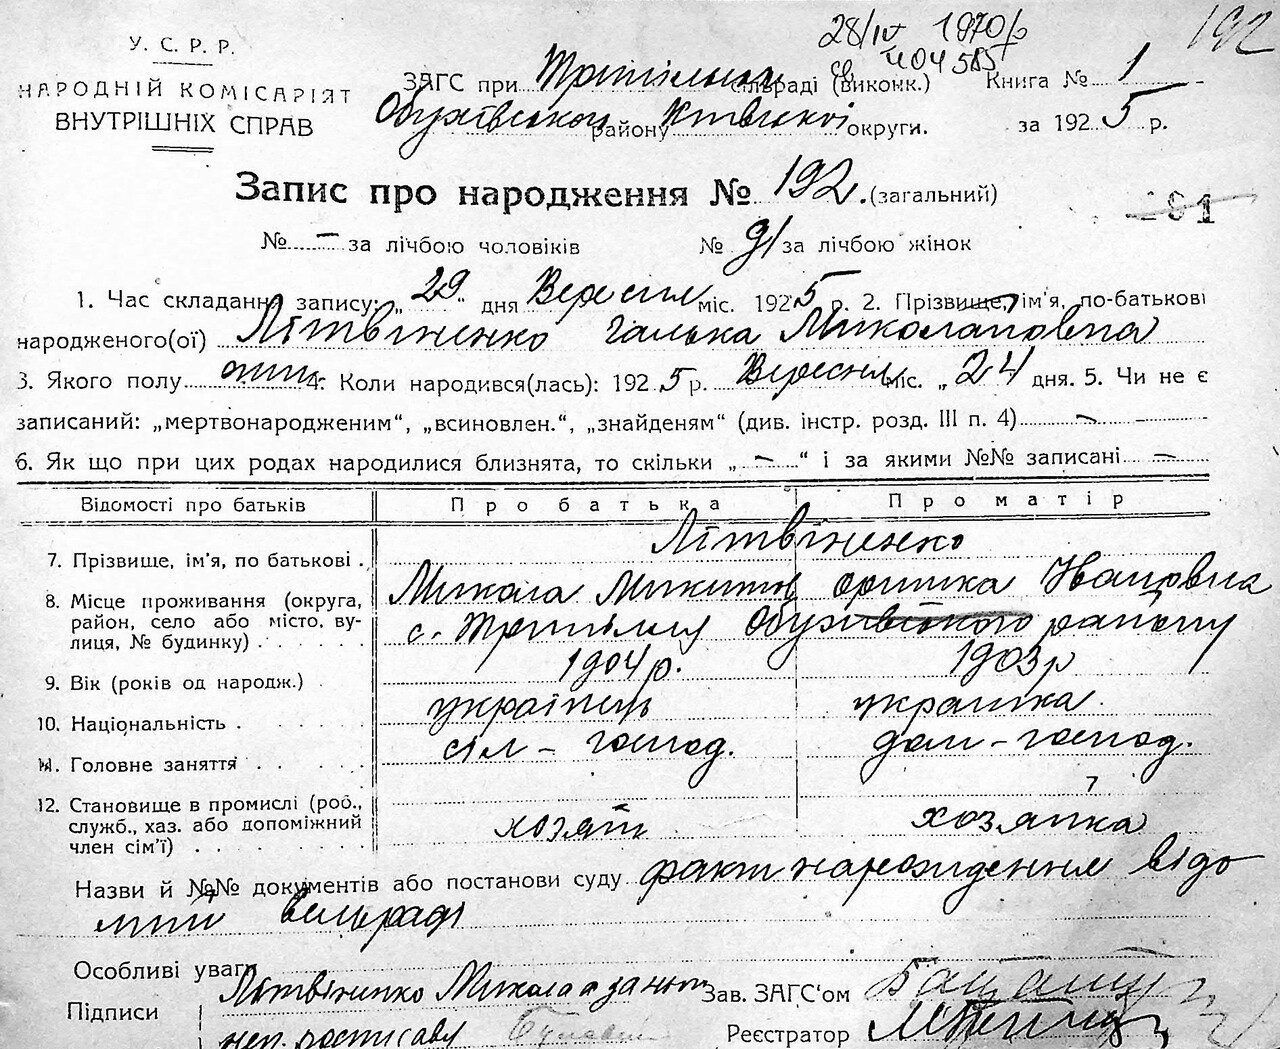 28/IV 1970 р
192
У. С. Р. Р.
НАРОДНІЙ КОМІСАРІЯТ
ВНУТРІШНІХ СПРАВ
ЗАГС при Трипільськ сільраді (виконк.) Книга № 1
Обухівського району Київської округи. за 1925 р.
Запис про народження № 192. (загальний)
№ – за лічбою чоловіків № 91 за лічбою жінок
1. Час складання запису: „29" дня Вересня міс. 1925 р. 2. Прізвище, ім'я, по-батькові
народженого(ої) Літвіненко Галька Миколаївна
3. Якого полу 4. Коли народився(лась): 1925 р. Вересня міс. „24 дня. 5. Чи не є
записаний: „мертвонародженим“, „всиновлен.“, „знайденям“ (див. інстр. розд. III п. 4) –
6. Як що при цих родах народилися близнята, то скільки „–“ і за якими №№ записані –
Відомості про батьків Про батька Про матір
7. Прізвище, ім'я, по батькові . Літвіненко
Микола Микитов Оришка Івановна
8. Місце проживання (округа, район, село або місто, вулиця, № будинку) с. Трипілля Обухівського району
9. Вік (років од народж.) 1904 р. 1903 р
10. Національність українець украінка
11. Головне заняття сіл – господ. дом – господ.
12. Становище в промислі (роб., служб., хаз. або допоміжний член сім'ї) хозяїн хозяйка
Назви й №№ документів або постанови суду факт народження відо
мий сільраді
Особливі уваги
Підписи Літвіненко Микола а за него
неп. росписавс
Зав. ЗАГС‘ом
Реєстратор